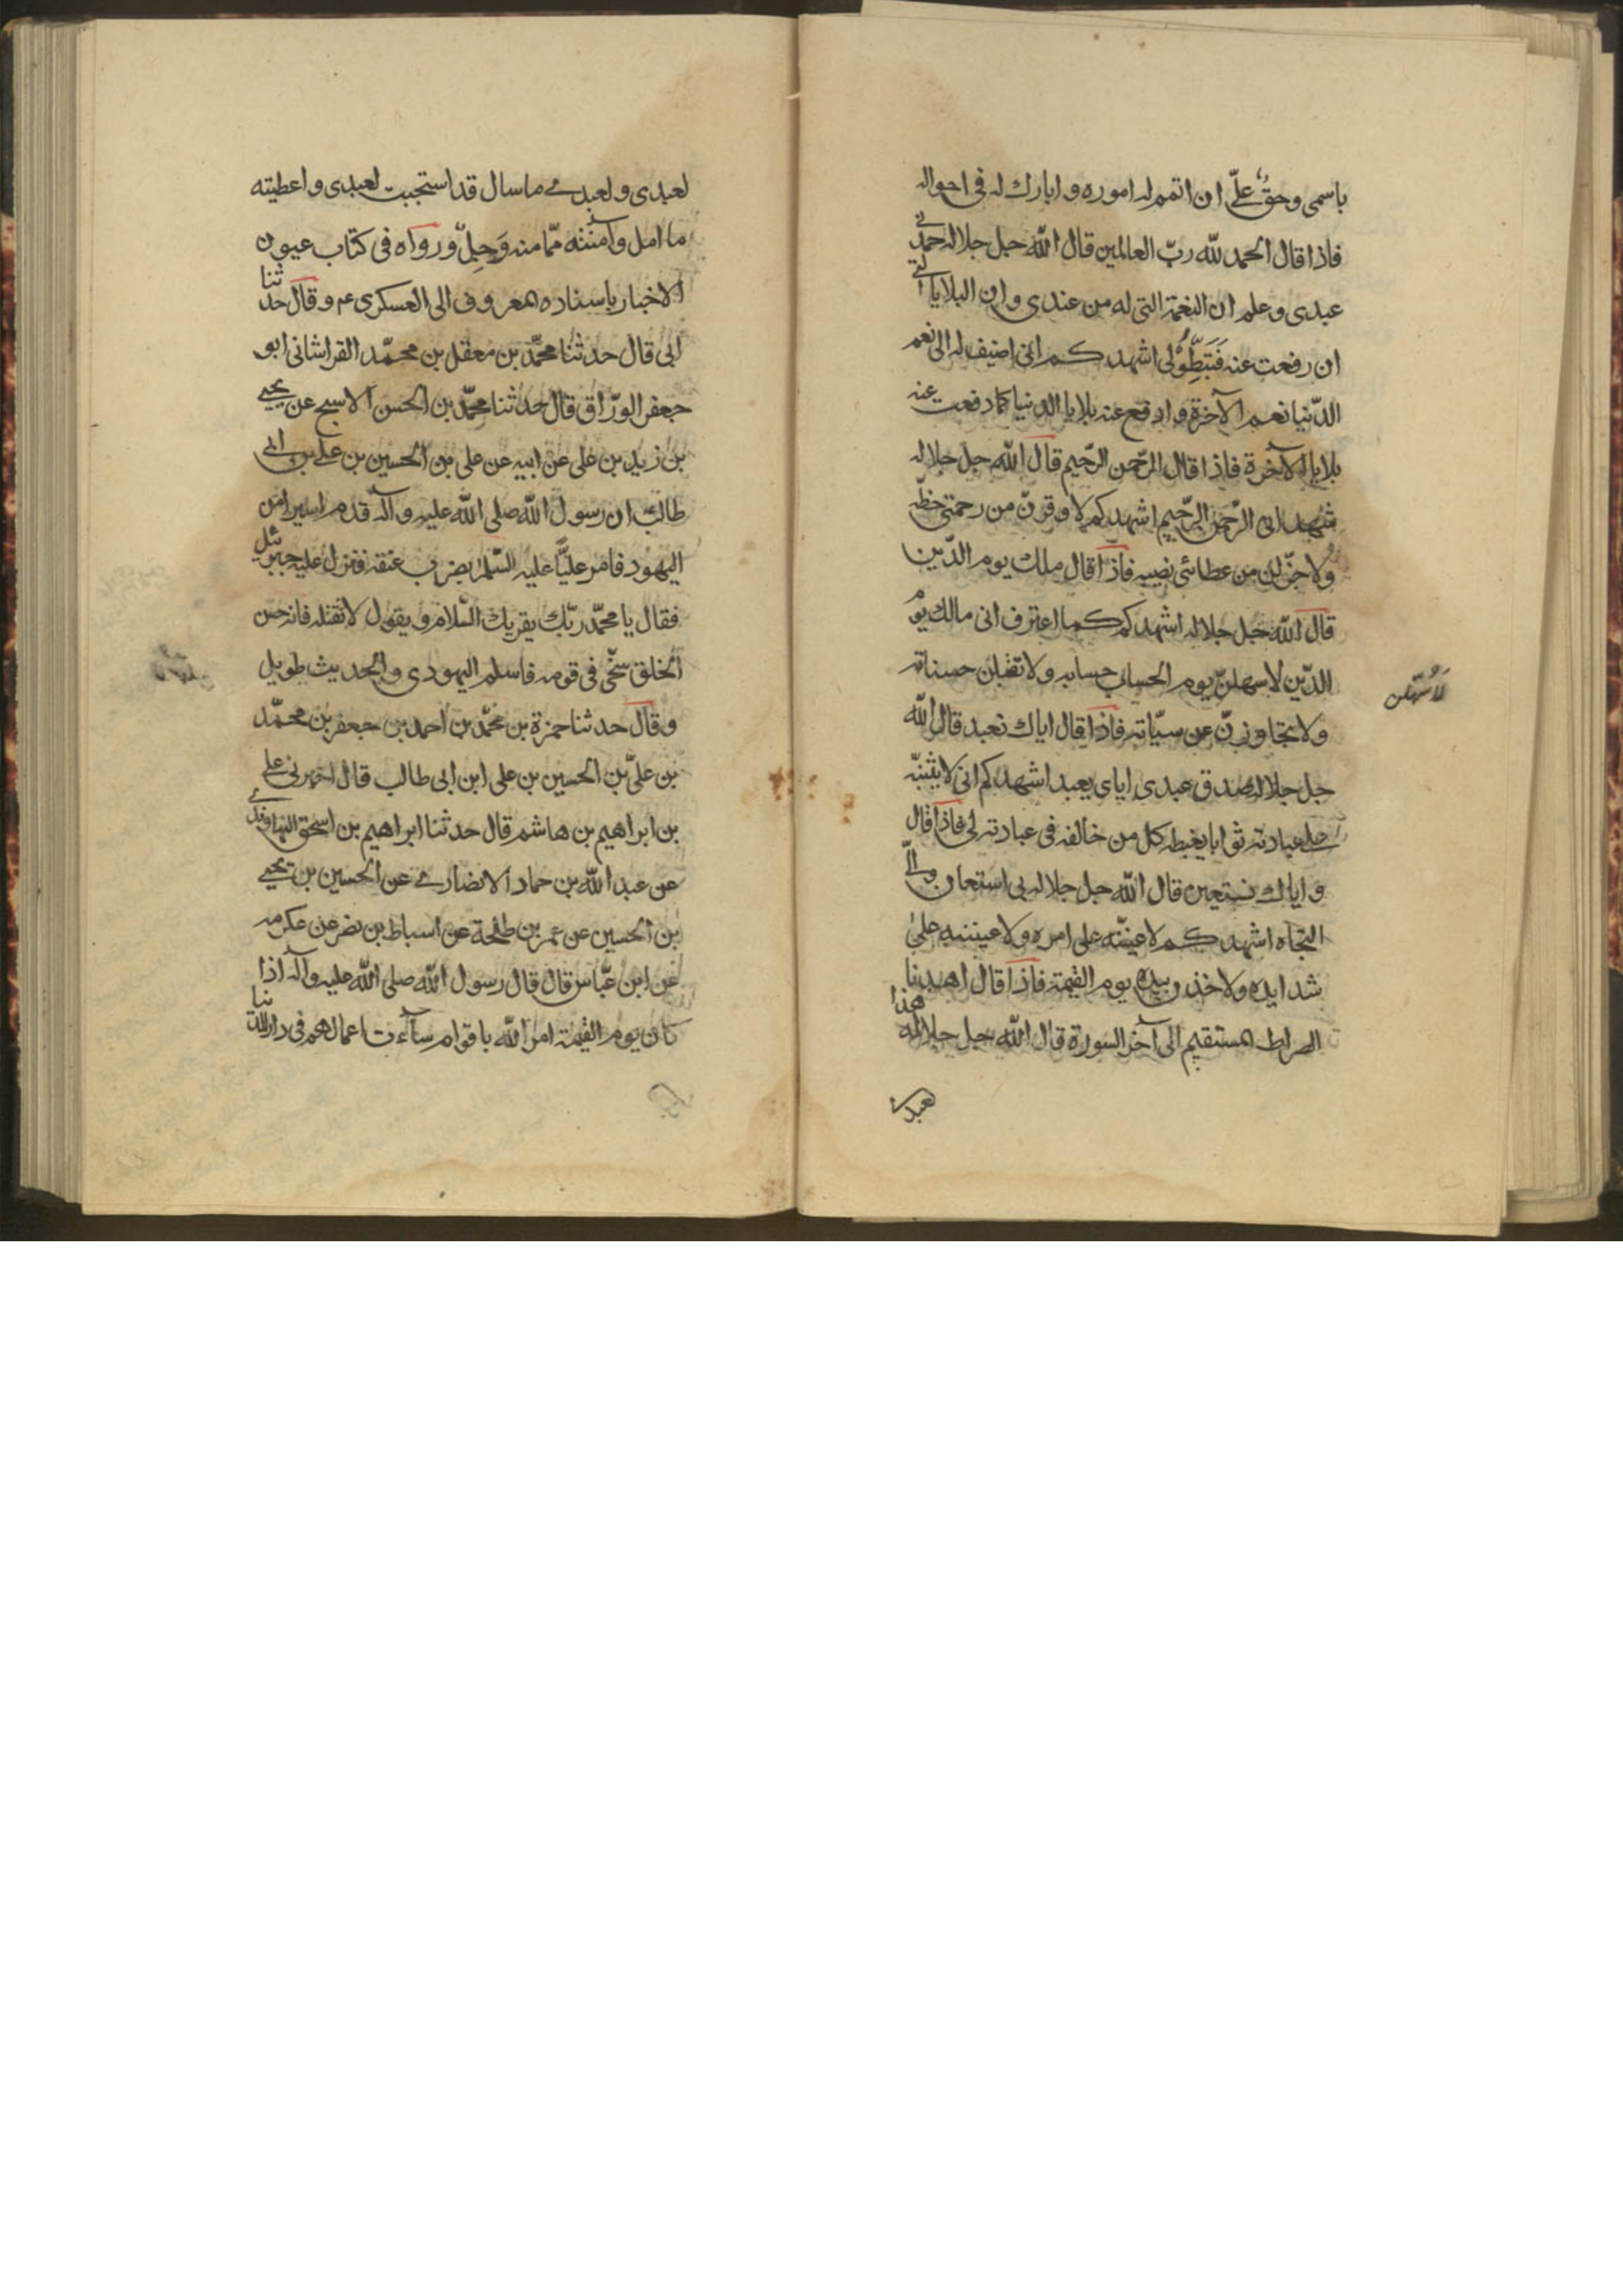 باسمى وحق علىّ ان اتمم له اموره وابارك له فى احواله
فاذا قال الحمد للّه ربّ العالمين قال اللّه جل جلاله حمدنى
عبدى وعلم ان النعمة التى له من عندى وان البلايا التى
ان رفعت عنه فبتطوّلى اشهدكم انى اضيف له الى نعم
الدّنيا نعم الآخرة وادفع عنه بلايا الدنيا كما دفعت عنه
بلايا الآخرة فاذا قال الرّحمن الرّحيم قال اللّه جل جلاله
شهد انى الرّحمن الرّحيم اشهدكم لاوفرنّ من رحمتى حظّه
ولاجزلن من عطائى نصيبه فاذا قال ملك يوم الدّين
قال اللّه جل جلاله اشهدكم كما اعترف انى مالك يوم
الدّين لاسهلنّ يوم الحساب حسابه ولاتقبلن حسناته
لاسهّلن
ولاتجاوزنّ عن سيّاته فاذا قال اياك نعبد قال اللّه
جل جلاله صدق عبدى اياى يعبد اشهدكم انى لاثيبنّه
على عبادته ثوابا يغبطه كل من خالفه فى عبادته لى فاذا قال
واياك نستعين قال اللّه جل جلاله بى استعان والىّ
التجاه اشهدكم لاعيننّه على امره ولاعيننه على
شدايده ولاخذن بيده يوم القيمة فاذا قال اهدنا
الصراط المستقيم الى آخر السورة قال اللّه جل جلاله هذا
لعبدى
لعبدى ولعبدى ما سال قد استجبت لعبدى واعطيته
ما امل وآمنته ممّا منه وجل ورواه فى كتاب عيون
الاخبار باسناده المعروف الى العسكرى عم وقال حدثنا
ابى قال حدثنا محمّد بن معقل بن محمّد القراشانى ابو
جعفر الورّاق قال حدثنا محمّد بن الحسن الاسج عن يحيى
بن زيد بن على عن ابيه عن على بن الحسين بن على بن ابى
طالب ان رسول اللّه صلى اللّه عليه وآله قدم اسيرا من
اليهود فامر عليّا عليه السّلم بضرب عنقه فنزل عليه جبرئيل
فقال يا محمّد ربّك يقريك السّلام ويقول لا تقتله فانه حسن
الخلق سخّى فى قومه فاسلم اليهودى والحديث طويل
وقال حدثنا حمزة بن محمّد بن احمد بن جعفر بن محمّد
بن علىّ بن الحسين بن على ابن ابى طالب قال اخبرنى على
بن ابراهيم بن هاشم قال حدثنا ابراهيم بن اسحق النهاوندى
عن عبد اللّه بن حماد الانصارى عن الحسين بن يحيى
بن الحسين عن عمر بن طلحة عن اسباط بن نصر عن عكرمه
عن ابن عبّاس قال قال رسول اللّه صلى اللّه عليه وآله اذا
كان يوم القيمة امر اللّه باقوام سآءت اعمالهم فى دار الدنيا